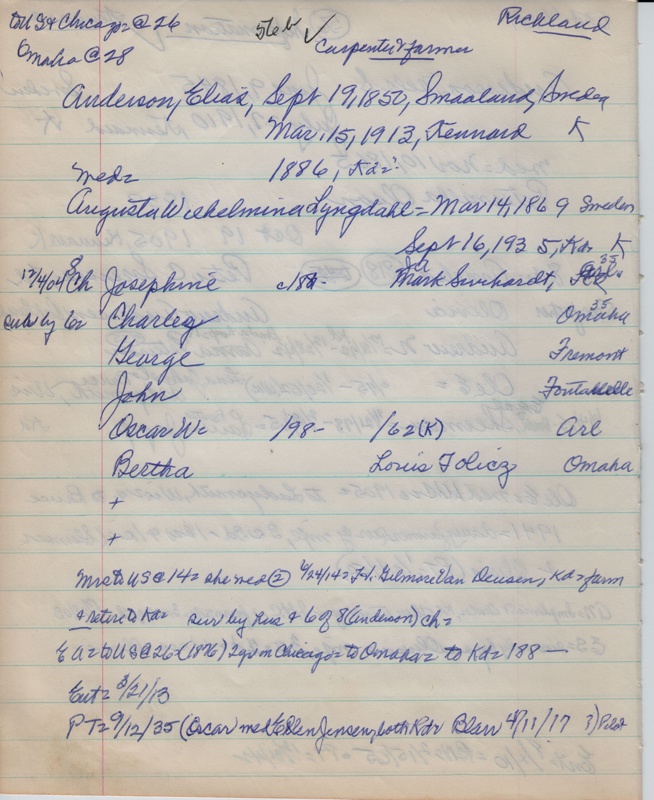 to US & Chicago @ 26 Richland
Omaha @ 28 Carpenter & farmer
Anderson, Elias, Sept 19, 1850, Smaaland, Sweden
Mar. 15, 1913, Kennard K
med= 1886, Kd=
Augusta Wilhelmina Lyngdahl = Mar 14, 1869 Sweden
Sept 16, 1935, Kd= K
12/4/04 8 Ch Josephine Mark Swihardt, 35
surv by 6= Charley Omaha 35
George Fremont
John Fontanelle
Oscar W= /98- /62(K) Arl
Bertha Louis Omaha
+
+
Mrs to US @ 14= she med (2) 6/24/14= Gilmore Van Deusen, Kd= farm
& retire to Kd= surv by hus & 6 of 8 (Anderson) ch=
E A= to US @ 26= (1876) 2 yr in Chicago= to Omaha= to Kd= 188-
Ent= 3/21/13
PT= 9/12/35 (Oscar med Ellen Jensen, both Kd= Blair 4/11/17 Pilot